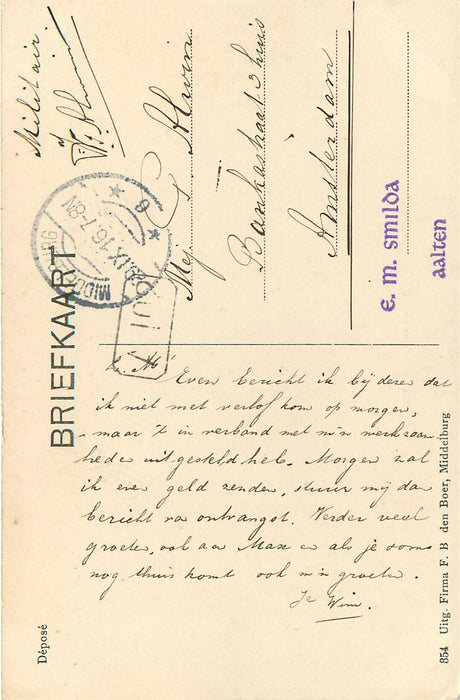 BRIEFKAART
Militair.
W. Alwin
MIDDELBURG
9 IX 16 7-8N
Mej G Alwin
Bankastraat 3 huis
Amsterdam
E. M. SMILDA
AALTEN
L. M!
Even bericht ik bij deze dat
ik niet met verlof kom op morgen,
maar 't in verband met m'n werkzaam
hede uitgesteld heb. Morgen zal
ik even geld zenden, stuur mij dan
bericht va ontvangst. Verder veel
groete, ook aa Max en als je soms
nog thuis komt ook m'n groete.
Je Wim.
Déposé
354 Uitg. Firma F. B den Boer, Middelburg